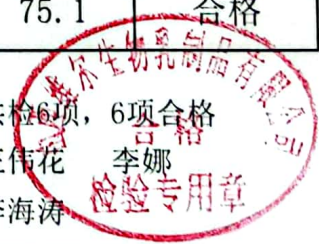 75.1 合格
检6项，6项合格
伟花 李娜
海涛
维尔生物乳制品有限公司
合格
检验专用章